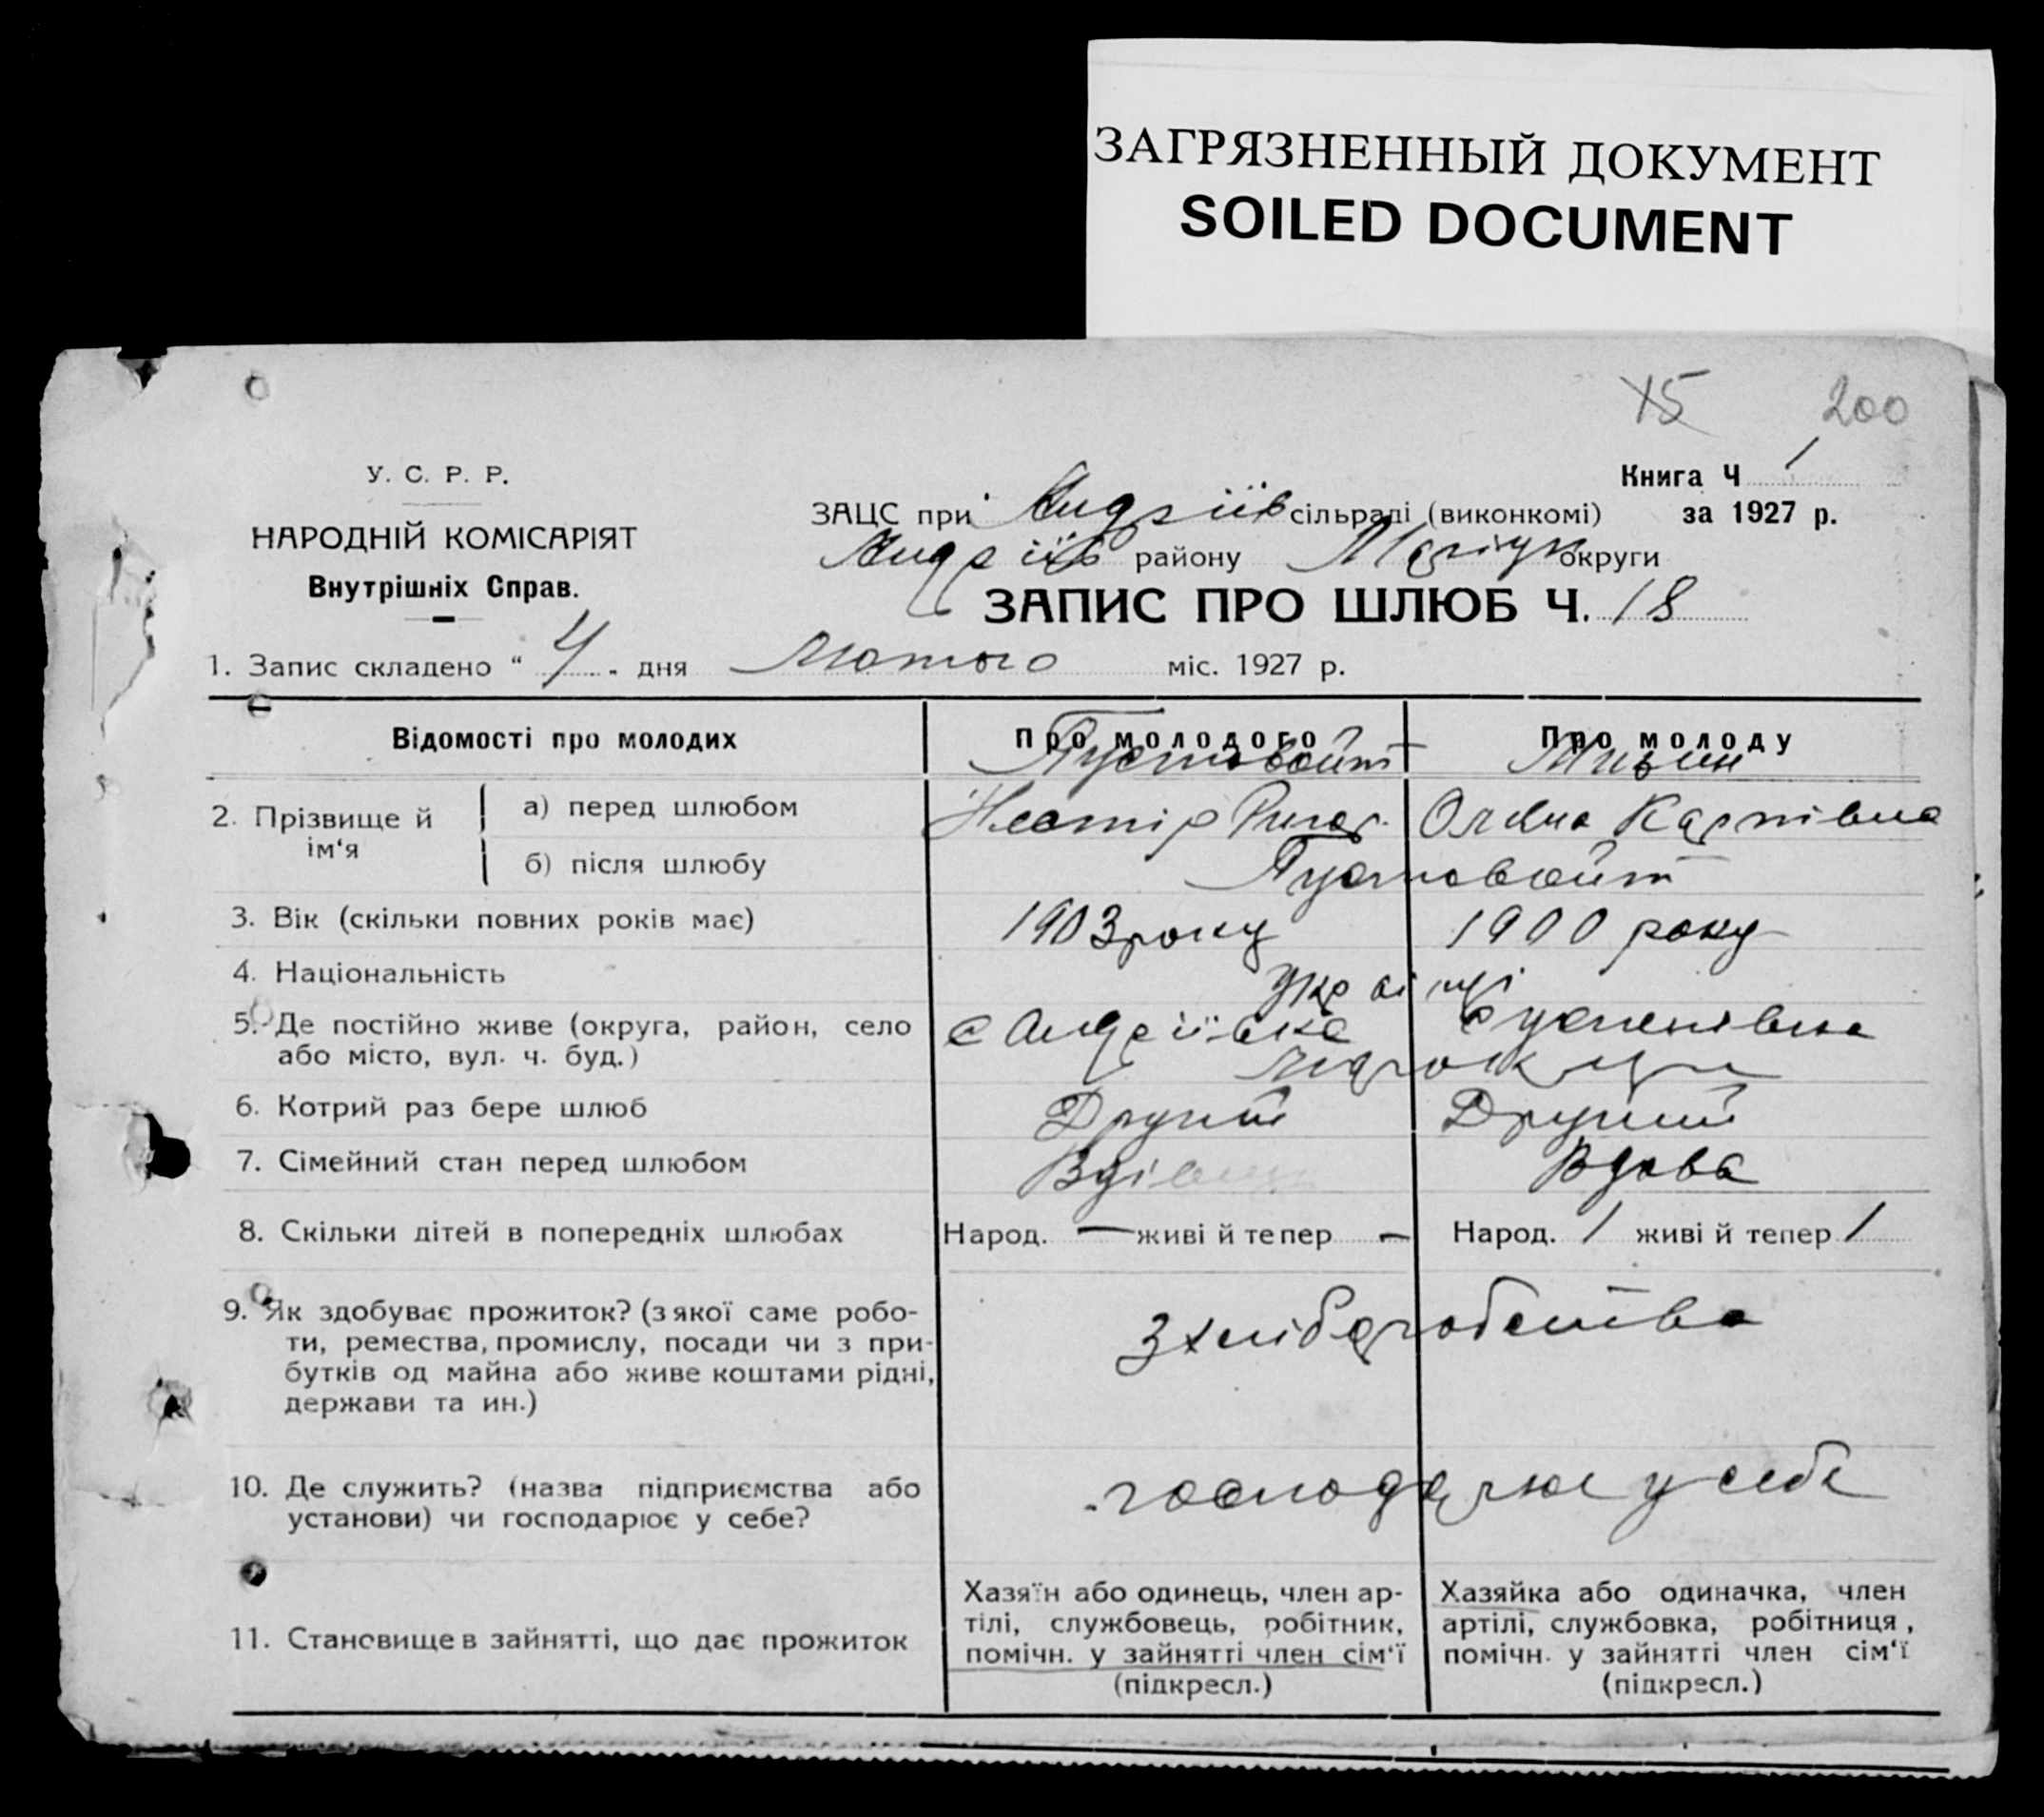 ЗАГРЯЗНЕННЫЙ ДОКУМЕНТ
SOILED DOCUMENT
15 200
У. С. Р. Р.
Книга Ч 1
ЗАЦС при Андріїв сільраді (виконкомі) за 1927 р.
НАРОДНІЙ КОМІСАРІЯТ
Андріїв району Маріуп округи
Внутрішніх Справ.
ЗАПИС ПРО ШЛЮБ Ч. 18
1. Запис складено " 4 " дня Лютого міс. 1927 р.
Відомості про молодих Про молодого Про молоду
Пустовойт
2. Прізвище й ім'я а) перед шлюбом Нестір Григ. Олена Карпівна
б) після шлюбу Пустовойт
3. Вік (скільки повних років має) 1903 року 1900 року
4. Національність Україці
5. Де постійно живе (округа, район, село с Андріївка
або місто, вул. ч. буд.)
6. Котрий раз бере шлюб Другий Другий
7. Сімейний стан перед шлюбом Вдівець Вдова
8. Скільки дітей в попередніх шлюбах Народ. — живі й тепер — Народ. 1 живі й тепер 1
9. Як здобуває прожиток? (з якої саме робо-
ти, ремества, промислу, посади чи з при-
бутків од майна або живе коштами рідні,
держави та ин.)
З хліборобства
10. Де служить? (назва підприємства або
установи) чи господарює у себе?
господарює у себе
11. Становище в зайнятті, що дає прожиток
Хазяїн або одинець, член ар-
тілі, службовець, робітник,
помічн. у зайнятті член сім'ї
(підкресл.)
Хазяйка або одиначка, член
артілі, службовка, робітниця,
помічн. у зайнятті член сім'ї
(підкресл.)